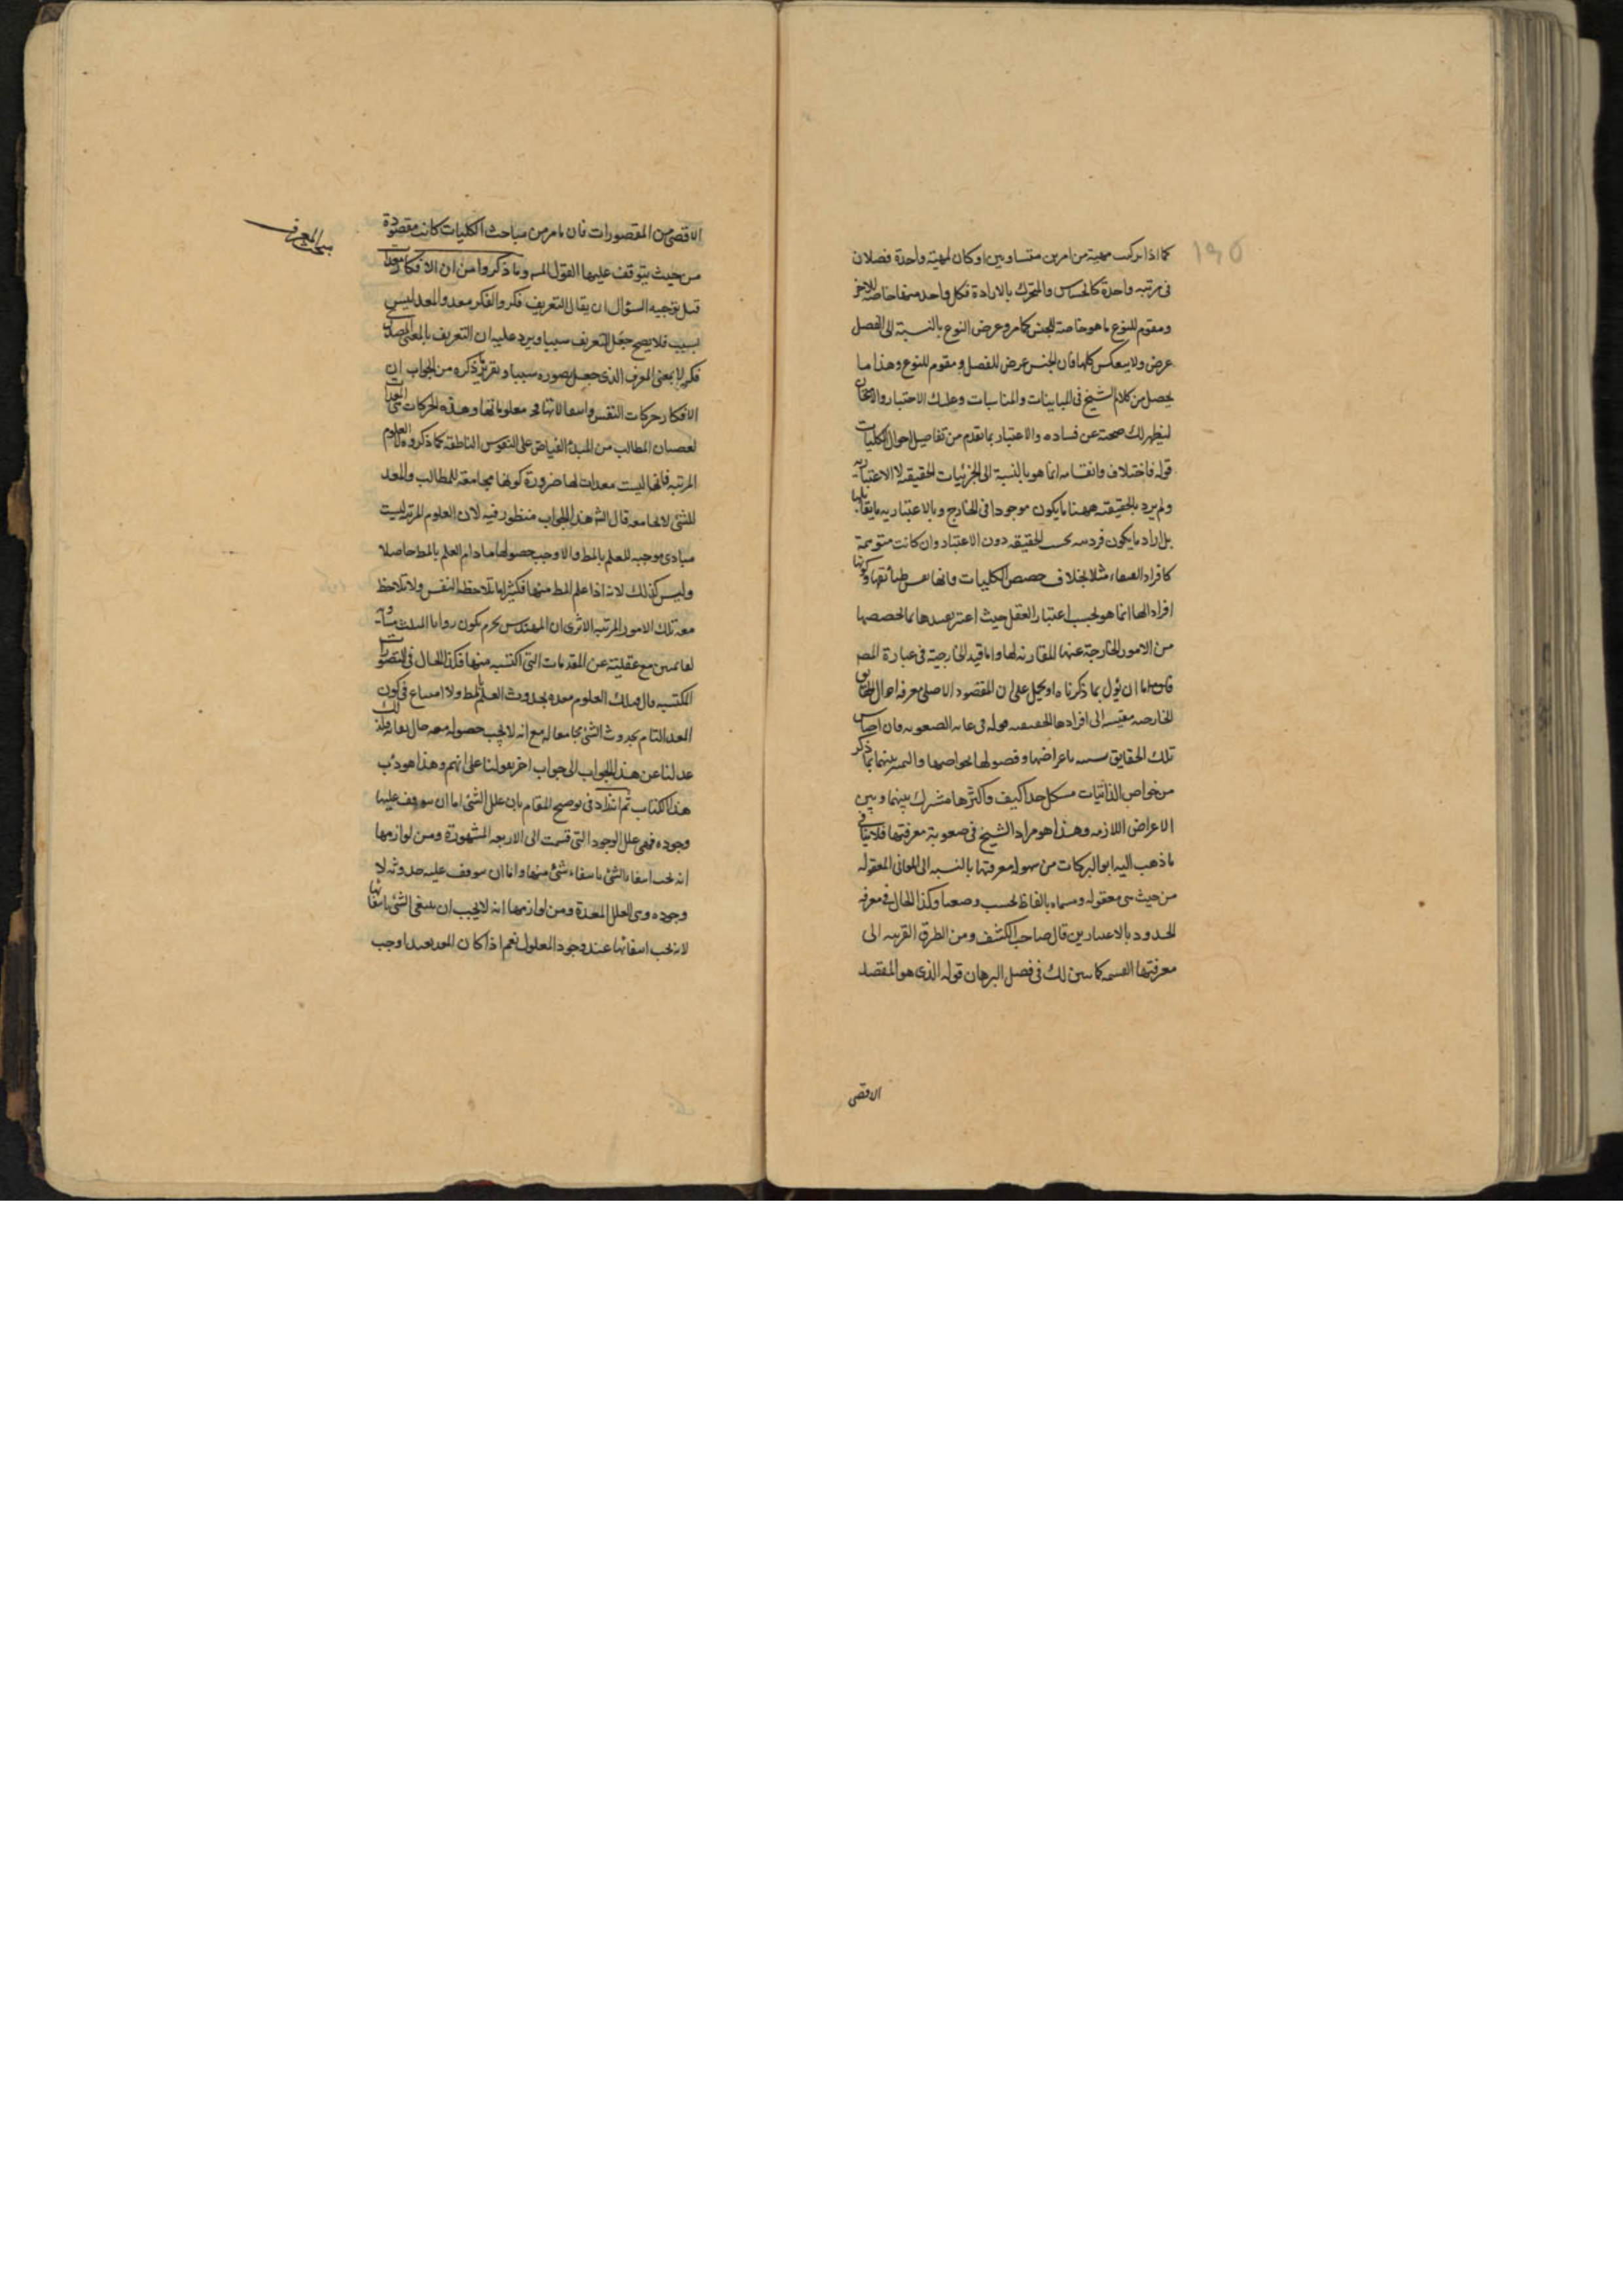 ١٩٥
كما اذا تركب مهية من امرين متساويين او كان لمهية واحدة فصلان
فى مرتبه واحدة كالحساس والمتحرك بالارادة فكل واحد منها خاصة للاخر
ومقوم للنوع ما هو خاصة للجنس كما مر وعرض النوع بالنسبة الى الفصل
عرض ولا ينعكس كلها فان الجنس عرض للفصل ومقوم للنوع وهذا ما
يحصل من كلام الشيخ فى المباينات والمناسبات وعليك الاختبار والامتحان
ليظهر لك صحته عن فساده والاعتبار بما تقدم من تفاصيل احوال الكليات
قوله فاختلاف وانقسامه انما هو بالنسبة الى الجزئيات الحقيقية لا الاعتبارية
ولم يرد بالحقيقته ههنا ما يكون موجودا فى الخارج وبالاعتباريه ما يقابلها
بل اراد ما يكون فرديته بحسب الحقيقه دون الاعتبار وان كانت متوهمة
كافراد العنقاء مثلا بخلاف حصص الكليات فانها نفس طبائعها وكونها
افرادا لها انما هو بحسب اعتبار العقل حيث اعتبر تقييدها بما يخصصها
من الامور الخارجة عنها المقارنه لها واما قيد الخارجية فى عبارة المص
فاما ان يؤول بما ذكرناه او يحمل على ان المقصود الاصلى معرفة احوال الحقايق
الخارجيه مقيسه الى افرادها الحقيقيه قوله فى غايه الصعوبه فان اجناس
تلك الحقايق باعراضها وفصولها بخواصها والتميز بينهما بما ذكر
من خواص الذاتيات مشكل جدا كيف واكثرها مشترك بينها وبين
الاعراض اللازمه وهذا هو مراد الشيخ فى صعوبة معرفتها فلا ينافى
ما ذهب اليه ابو البركات من سهوله معرفتها بالنسبه الى المعانى المعقوله
من حيث هى معقوله ومسماه بالفاظ بحسب وضعها وكذا الحال فى معرفه
الحدود بالاعتبارين قال صاحب الكشف ومن الطرق القريبه الى
معرفتها القسمه كما سيبين لك فى فصل البرهان قوله الذى هو المقصد
الاقصى
مبحث المعرف
الاقصى من المقصورات فان ما مر من مباحث الكليات كانت مقصودة
من حيث يتوقف عليها القول وما ذكروا من ان الافكار معدات
قيل توجيه السؤال ان يقال التعريف فكر والفكر معد والمعد ليس
بسبب فلا يصح جعل التعريف سببا ويرد عليه ان التعريف بالمعنى المصدرى
فكر لا بمعنى المعرف الذى جعل تصوره سببا وتقرير ما ذكره من الجواب ان
الافكار حركات النفس وانتقالاتها فى معلوماتها وهذه الحركات هى المعدات
لفيضان المطالب من المبدء الفياض على النفوس الناطقه كما ذكروه لا العلوم
المرتبه فانها ليست معدات لها ضرورة كونها مجامعة للمطالب والمعد
للشئ لا يجامعه قال الش هذا الجواب منظور فيه لان العلوم المرتبه ليست
مبادى موجبه للعلم بالمط والا وجب حصولها ما دام العلم بالمط حاصلا
وليس كذلك لانه اذا علم المط منها فكثيرا ما تلاحظه النفس ولا تلاحظ
معه تلك الامور المرتبه الا ترى ان المهندس يجزم بكون زوايا المثلث مساوية
لقائمتين مع غفلته عن المقدمات التى اكتسبه منها فكذا الحال فى التصورات
المكتسبه قال فتلك العلوم معده لحدوث العلم بالمط ولا امتناع فى كون
المعد التام بحدوث الشئ مجامعا له مع انه لا يجب حصوله معه حال بقائه فلذلك
عدلنا عن هذا الجواب الى جواب اخر بقولنا على انهم وهذا هو دأب
هذا الكتاب ثم انه زاد فى توضيح المقام بان علل الشئ اما ان يتوقف عليها
وجوده فهى علل الوجود التى قسمت الى الاربعه المشهورة ومن لوازمها
انه يجب انتفاء الشئ بانتفاء شئ منها واما ان يتوقف عليه حدوثه لا
وجوده وهى العلل المعدة ومن لوازمها انه لا يجب ان ينتفى الشئ بانتفائها
لانه يجب انتفائها عند وجود المعلول نعم اذا كان المعد بعيدا وجب